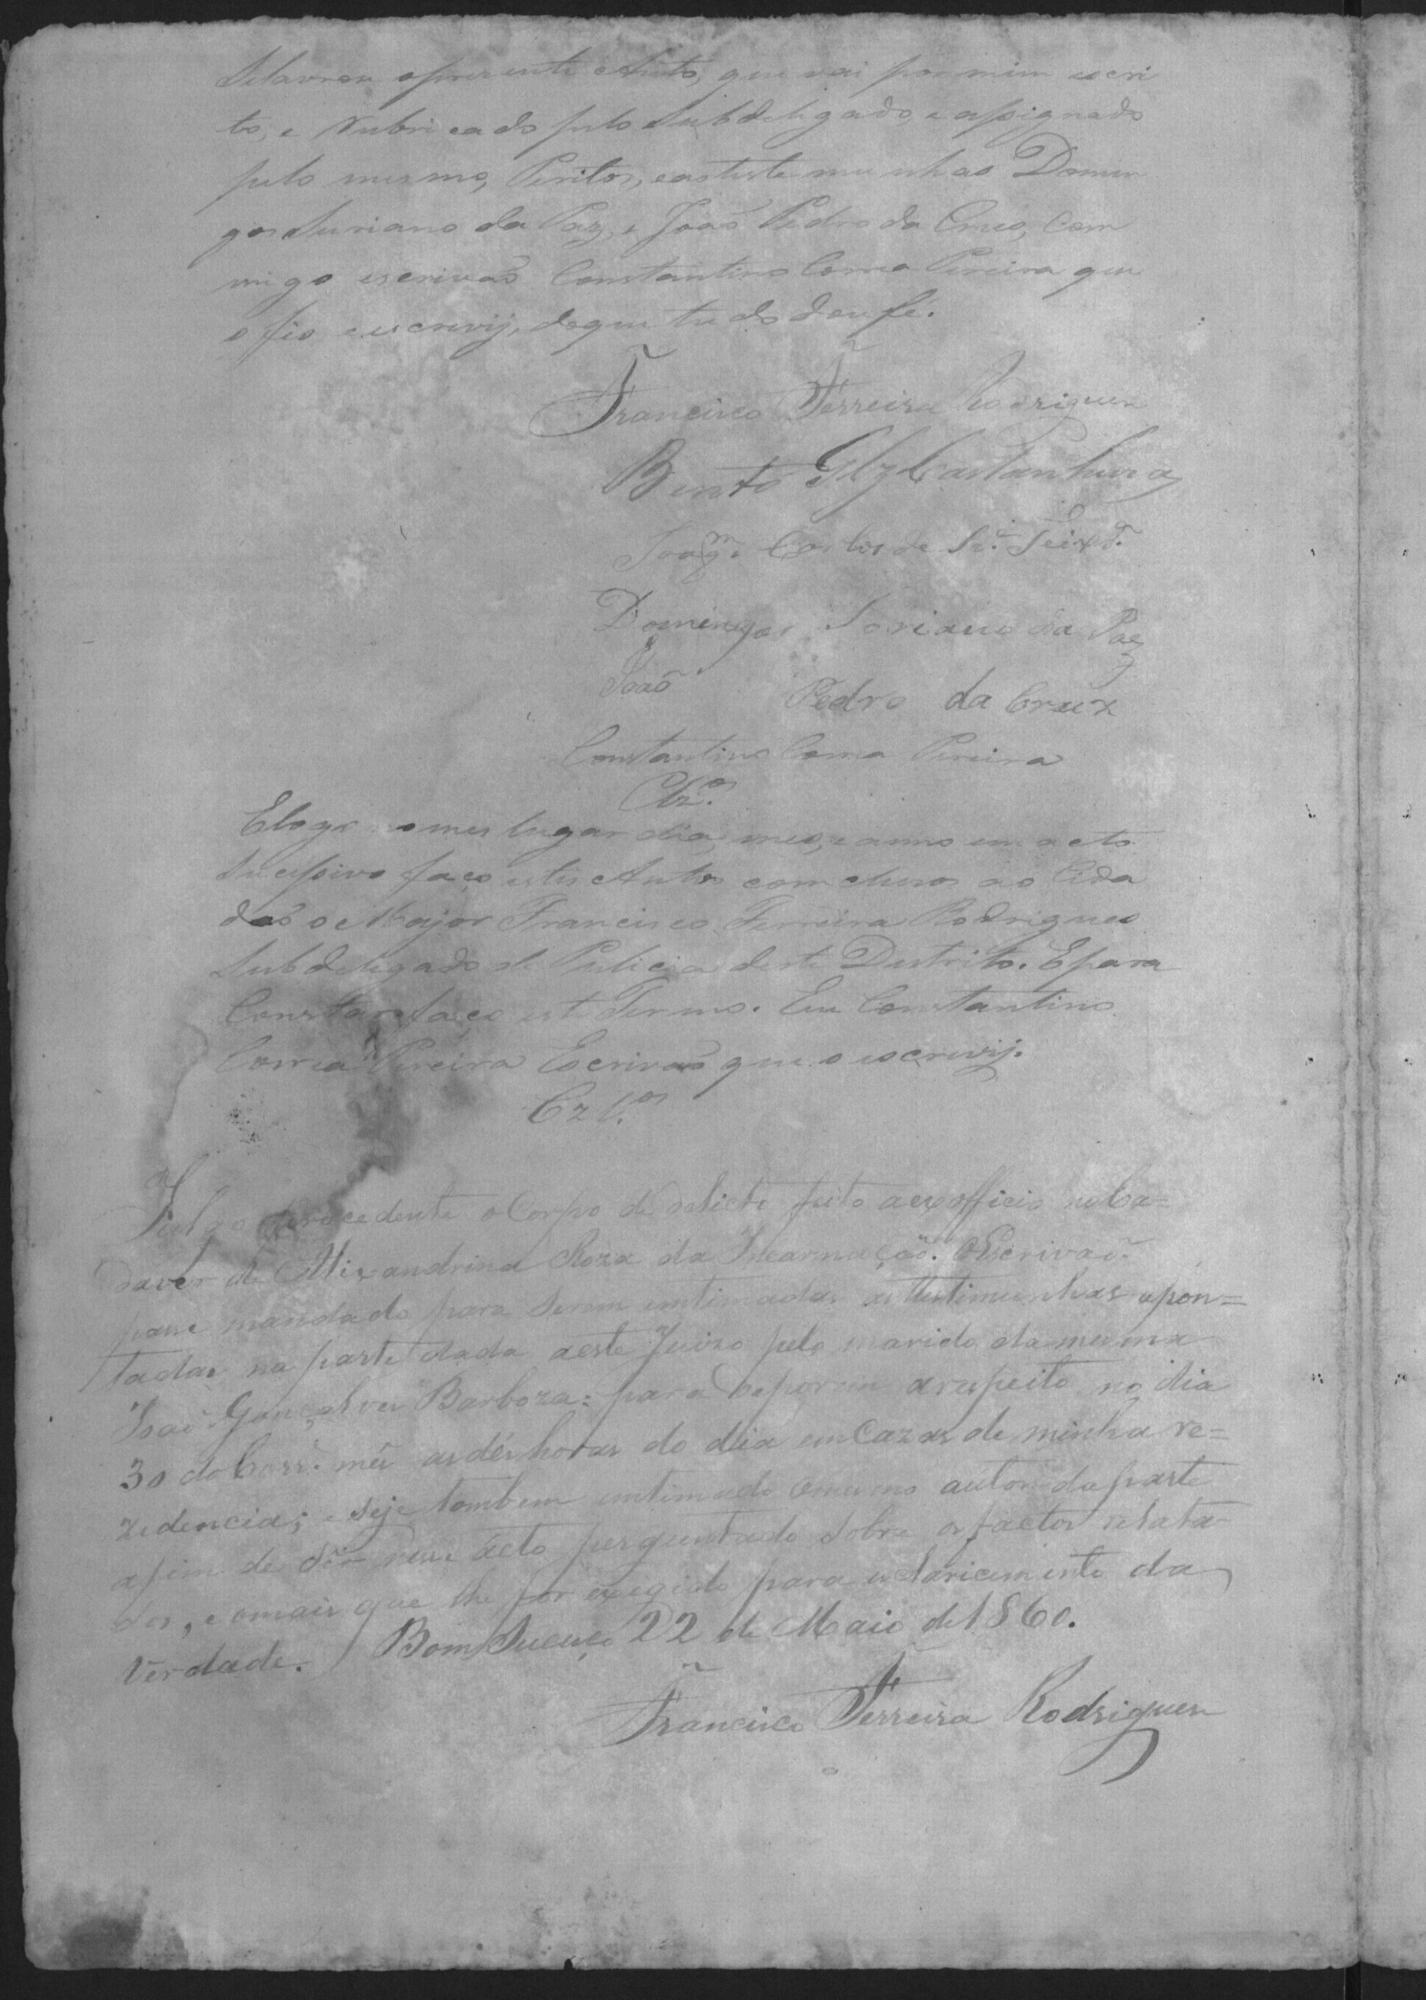 Selavrou opresente Auto, que vai por mim escri
to, e Rubricado pelo Subdelegado, e assignado
pelo mesmo, Peritos, eastestemunhas Domin
gos Suriano da Paz, e João Pedro da Cruz, Com
migo escrivaõ Constantino Correa Pereira que
o fis e escrevij, doque tudo dou fé.
Francisco Ferreira Rodrigues
Bento Glz Castanheira
Joaqm Carlos de
Domingos Soriano da Paz
João Pedro da Crux
Constantino Correa Pereira
Clz.ᵒ
Elogo nomes lugar dia, mes, e anno em acto
Sucessivo faço estes Autos comcluzos ao Cida
daõ o Major Francisco Ferreira Rodrigues
Subdelegado de Pulicia deste Destrito. Epara
Constar faço este Termo. Eu Constantino
Correa Pereira Escrivaõ que o escrevij.
Julgo procedente o Corpo de delicto feito aexofficio no Ca=
daver de Alixandrina Roza da Incarnação. OEscrivaõ
passe mandado para serem entimadas as testimunhas apon=
tadas na parte dada aeste Juizo pelo marido da mesma
João Gonçalves Barboza: para deporem arespeito no dia
30 do Corr.ᵉ mês asdés horas do dia emCazas de minha re=
zedencia; e seje tambem entimado omesmo autor daparte
afim de ser nesse acto perguntado sobre os factos relata-
dos, e omais que lhe for exegido para esclaricimento da
Verdade. Bom Sucesso 22 de Maio de 1860.
Francisco Ferreira Rodrigues